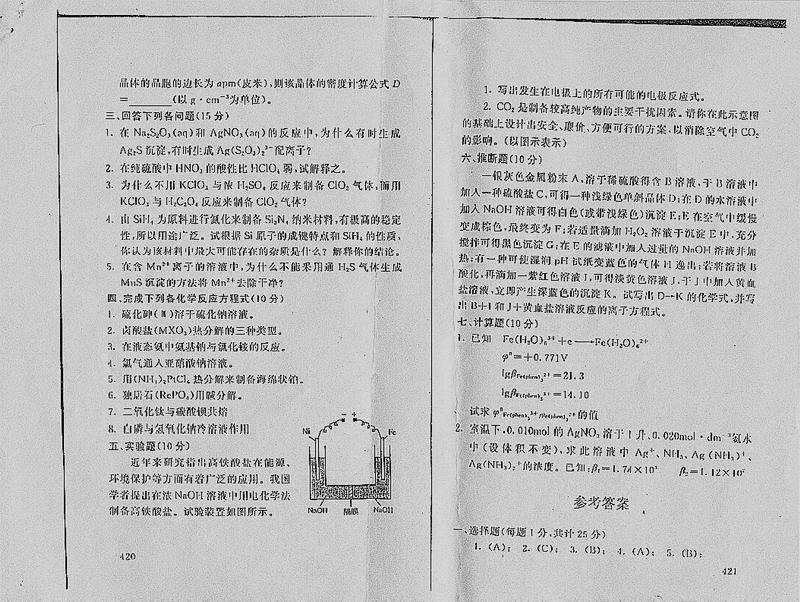 晶体的晶胞的边长为 apm(皮米),则该晶体的密度计算公式 D
=________(以 g·cm⁻³为单位)。
三、回答下列各问题(15 分)
1. 在 Na₂S₂O₃(aq)和 AgNO₃(aq)的反应中,为什么有时生成
Ag₂S 沉淀,有时生成 Ag(S₂O₃)₂³⁻配离子?
2. 在纯硫酸中 HNO₃ 的酸性比 HClO₄ 弱,试解释之。
3. 为什么不用 KClO₃ 与浓 H₂SO₄ 反应来制备 ClO₂ 气体,而用
KClO₃ 与 H₂C₂O₄ 反应来制备 ClO₂ 气体?
4. 由 SiH₄ 为原料进行氮化来制备 Si₃N₄ 纳米材料,有极高的稳定
性,所以用途广泛。试根据 Si 原子的成键特点和 SiH₄ 的性质,
你认为该材料中最大可能存在的杂质是什么?解释你的结论。
5. 在含 Mn²⁺离子的溶液中,为什么不能采用通 H₂S 气体生成
MnS 沉淀的方法将 Mn²⁺去除干净?
四、完成下列各化学反应方程式(10 分)
1. 硫化砷(Ⅲ)溶于硫化钠溶液。
2. 卤酸盐(MXO₃)热分解的三种类型。
3. 在液态氨中氨基钠与氯化铵的反应。
4. 氯气通入亚硝酸钠溶液。
5. 用(NH₄)₂PtCl₆ 热分解来制备海绵状铂。
6. 独居石(RePO₄)用碱分解。
7. 二氧化钛与碳酸钡共熔
8. 白磷与氢氧化钠冷溶液作用
五、实验题(10 分)
近年来研究指出高铁酸盐在能源、
环境保护等方面有着广泛的应用。我国
学者提出在浓 NaOH 溶液中用电化学法
制备高铁酸盐。试验装置如图所示。
- +
Ni Fe
NaOH 隔膜 NaOH
420
1. 写出发生在电极上的所有可能的电极反应式。
2. CO₂ 是制备较高纯产物的主要干扰因素。请你在此示意图
的基础上设计出安全、廉价、方便可行的方案,以消除空气中 CO₂
的影响。(以图示表示)
六、推断题(10 分)
一银灰色金属粉末 A,溶于稀硫酸得含 B 溶液,于 B 溶液中
加入一种硫酸盐 C,可得一种浅绿色单斜晶体 D;在 D 的水溶液中
加入 NaOH 溶液可得白色(或带浅绿色)沉淀 E;E 在空气中缓慢
变成棕色,最终变为 F;若适量滴加 H₂O₂ 溶液于沉淀 E 中,充分
搅拌可得黑色沉淀 G;在 E 的滤液中加入过量的 NaOH 溶液并加
热;有一种可使湿润 pH 试纸变蓝色的气体 H 逸出;若将溶液 B
酸化,再滴加一紫红色溶液 I,可得淡黄色溶液 J,于 J 中加入黄血
盐溶液,立即产生深蓝色的沉淀 K。试写出 D→K 的化学式,并写
出 B+I 和 J+黄血盐溶液反应的离子方程式。
七、计算题(10 分)
1. 已知 Fe(H₂O)₆³⁺+e──Fe(H₂O)₆²⁺
φ°=+0.771V
lgβFe(phen)₃²⁺=21.3
lgβFe(phen)₃³⁺=14.10
试求 φ°Fe(phen)₃³⁺/Fe(phen)₃²⁺的值
2. 室温下,0.010mol 的 AgNO₃ 溶于 1 升,0.020mol·dm⁻³氨水
中(设体积不变),求此溶液中 Ag⁺、NH₃、Ag(NH₃)⁺、
Ag(NH₃)₂⁺的浓度。已知:β₁=1.74×10³ β₂=1.12×10⁷
参考答案
一、选择题(每题 1 分,共计 25 分)
1. (A); 2. (C); 3. (B); 4. (A); 5. (B);
421